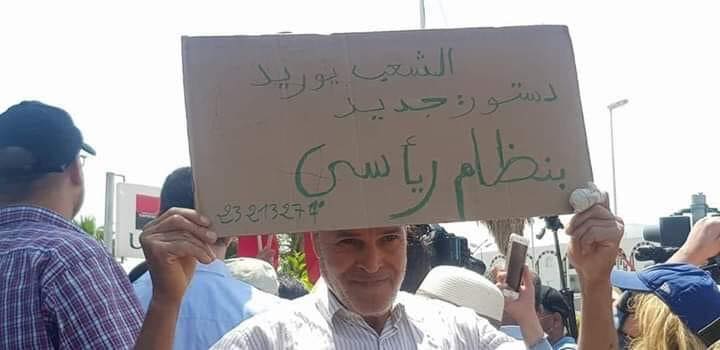 الشعب يوريد
دستور جديد
بنظام ريأسي
23213274